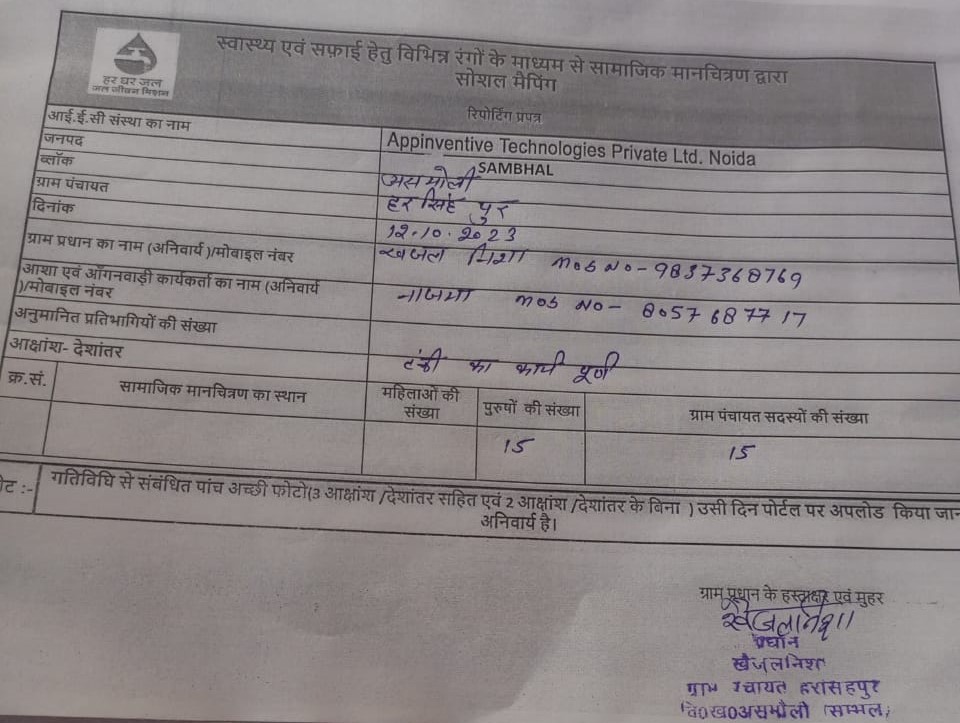 हर घर जल
जल जीवन मिशन
स्वास्थ्य एवं सफ़ाई हेतु विभिन्न रंगों के माध्यम से सामाजिक मानचित्रण द्वारा
सोशल मैपिंग
रिपोर्टिंग प्रपत्र
आई.ई.सी संस्था का नाम Appinventive Technologies Private Ltd. Noida
जनपद SAMBHAL
ब्लॉक असमोली
ग्राम पंचायत हरसिंह पुर
दिनांक 12.10.2023
ग्राम प्रधान का नाम (अनिवार्य )/मोबाइल नंबर निशा mob No-9837368769
आशा एवं आँगनवाड़ी कार्यकर्ता का नाम (अनिवार्य
)/मोबाइल नंबर नाजमा mob No- 8057687717
अनुमानित प्रतिभागियों की संख्या
आक्षांश- देशांतर टंकी का कार्य पूर्ण
क्र.सं. सामाजिक मानचित्रण का स्थान महिलाओं की संख्या पुरुषों की संख्या ग्राम पंचायत सदस्यों की संख्या
15 15
ोट :- गतिविधि से संबंधित पांच अच्छी फोटो(3 आक्षांश /देशांतर सहित एवं 2 आक्षांश /देशांतर के बिना ) उसी दिन पोर्टल पर अपलोड किया जान
अनिवार्य है।
ग्राम प्रधान के हस्ताक्षर एवं मुहर
प्रधान
खैजलनिशा
ग्राम पंचायत हरसिंहपुर
वि०ख०असमौली (सम्भल)